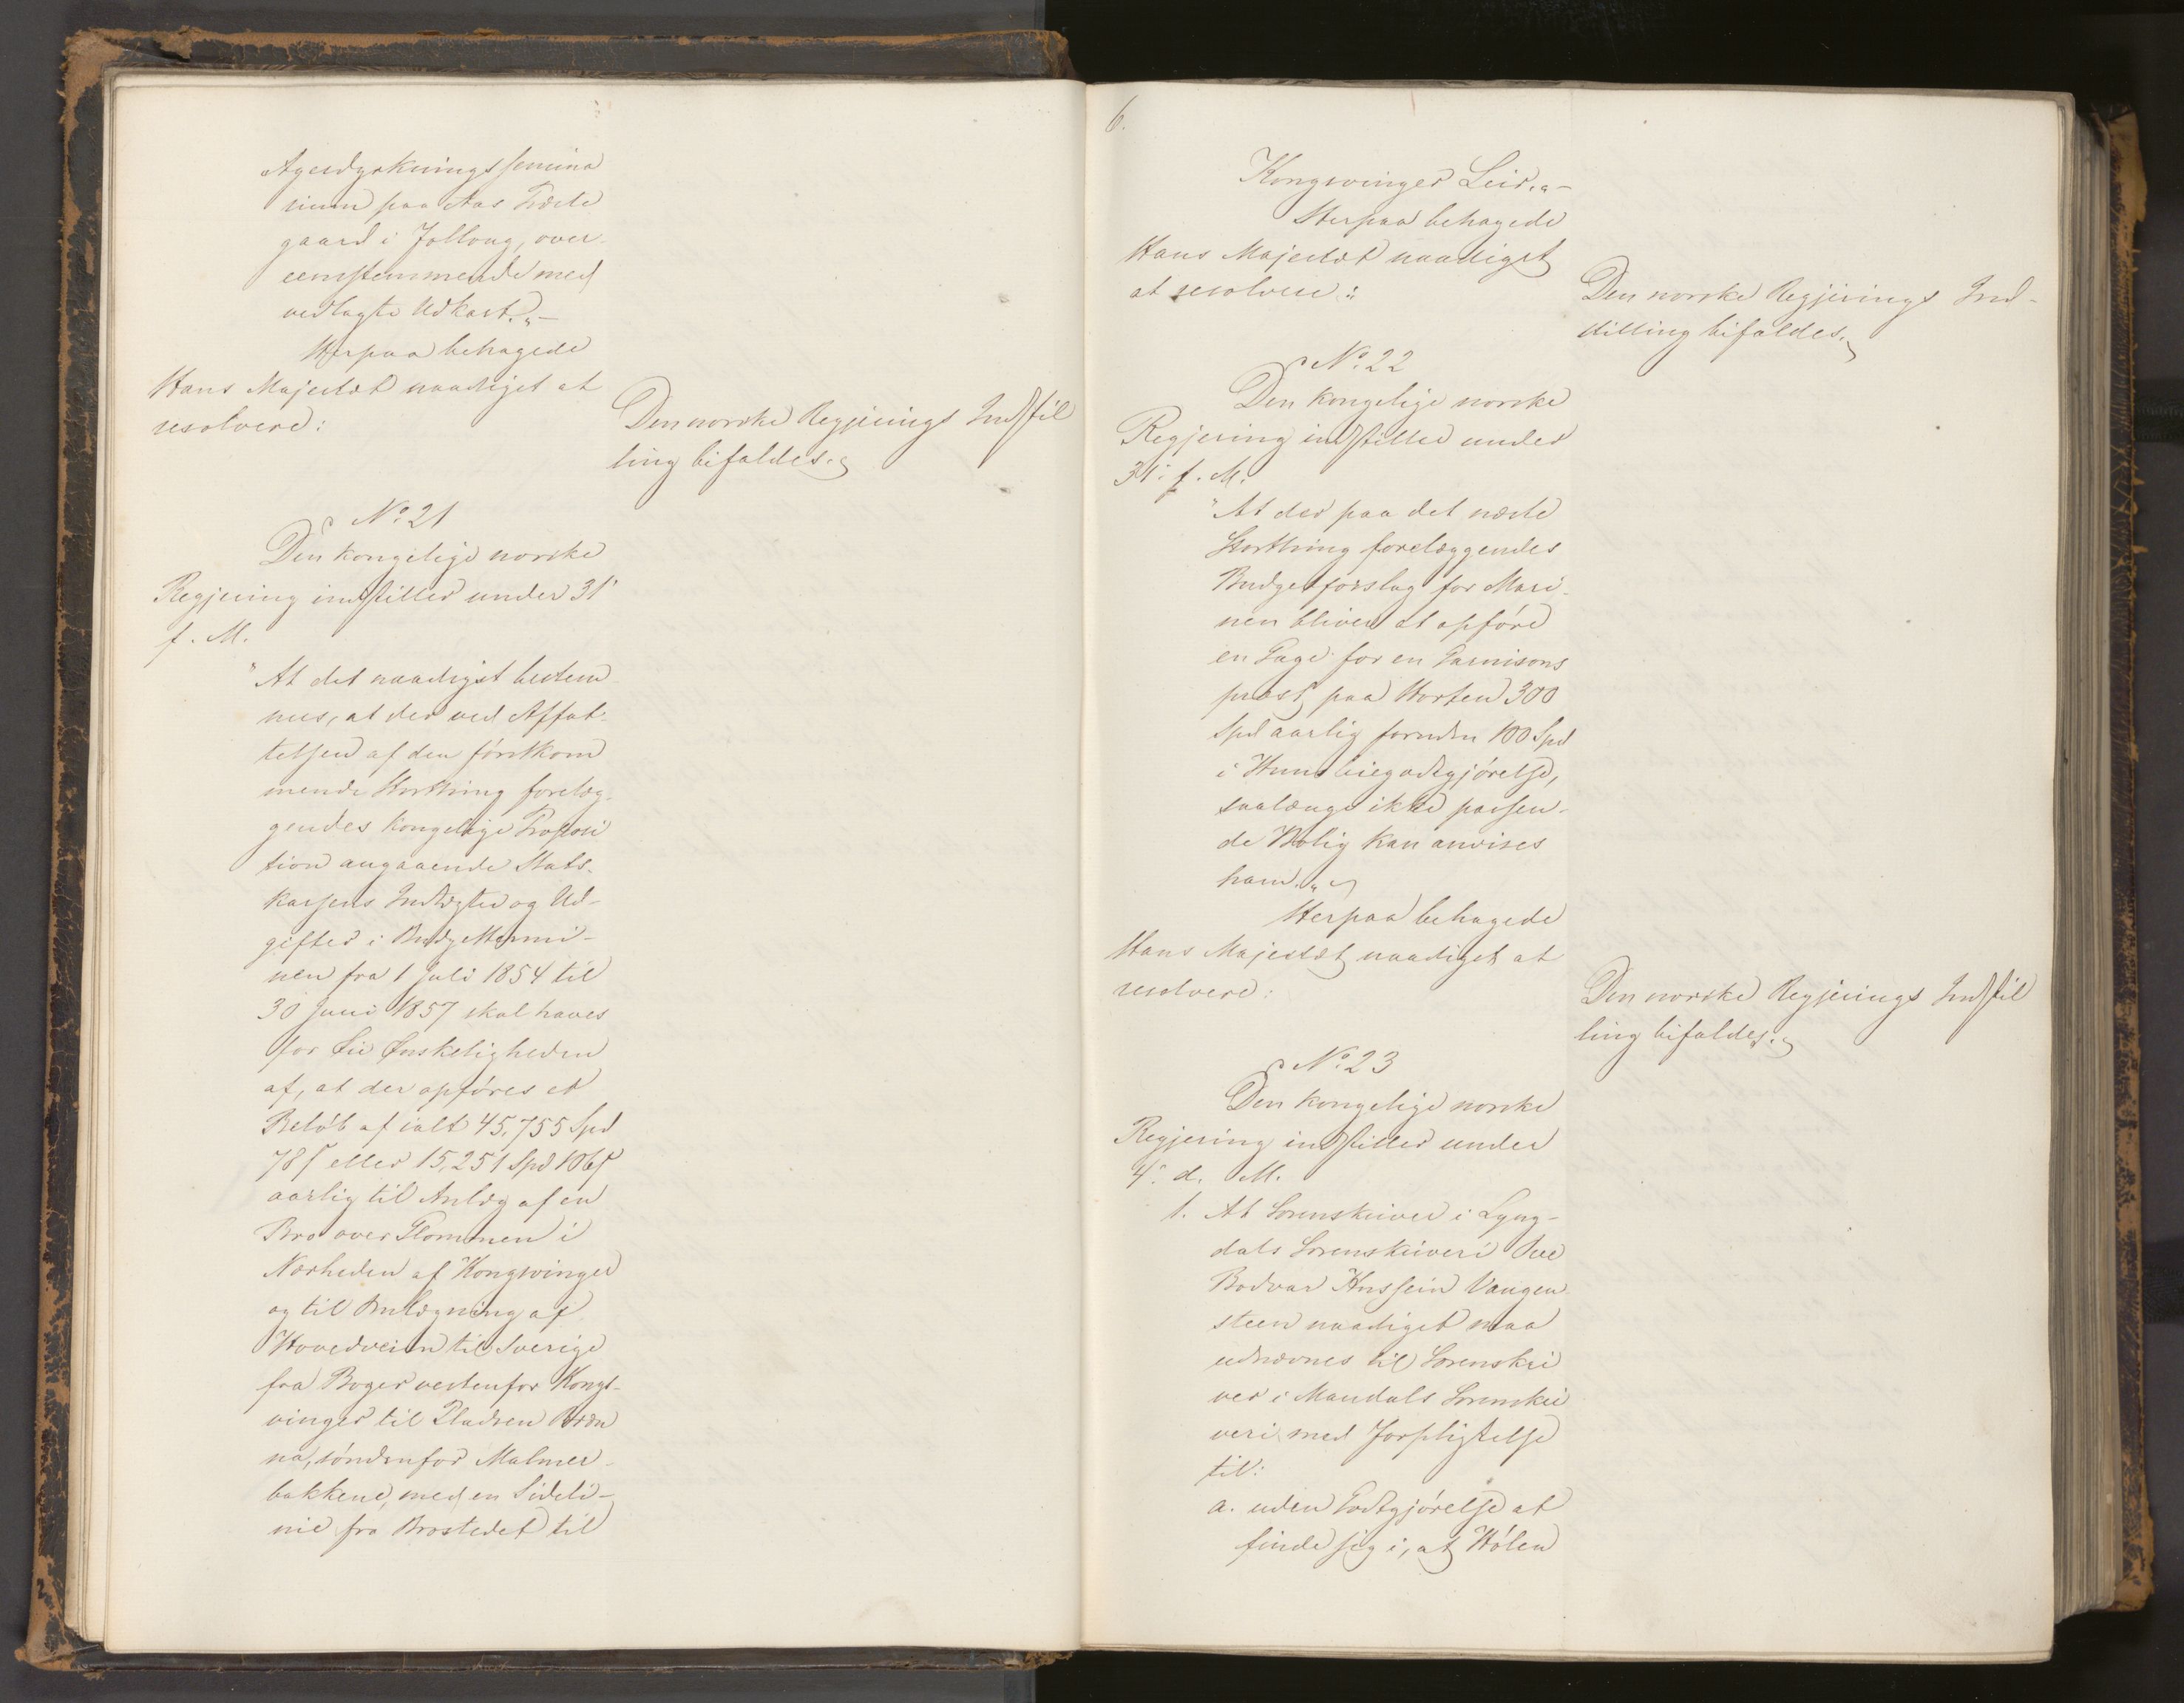 Agerdyrkningssemina
rium paa Aas Præste
gaard i Folloug, over-
eensstemmende med
vedlagte Udkast."—
Herpaa behagede
Hans Majestæt naadigst at
resolvere:
Den norske Regjerings Indstil
ling bifaldes.
No. 21
Den kongelige norske
Regjering indstiller under 31'
f. M.
"At det naadigst bestem-
mes, at der ved Affat-
telsen af den förstkom
mende Storthing forelæg-
gendes kongelige Proposi
tion angaaende Stats-
kassens Indtægter og Ud-
gifter i Budgettermi-
nen fra 1 Juli 1854 til
30 Juni 1857 skal haves
for Öie Önskeligheden
af, at der opföres et
Belöb af ialt 45,755 Spd
78 ß eller 15,251 Spd 106 ß
aarlig til Anlæg af en
Bro over Glommen i
Nærheden af Kongsvinger
og til Omlægning af
Hovedveien til Sverige
fra Boger vestenfor Kongs-
vinger til Pladsen Bræn
na, söndenfor Malmer-
bakkene, med en Sideli-
nie fra Brostedet til
6.
Kongsvinger Leir."—
Herpaa behagede
Hans Majestæt naadigst
at resolvere:
Den norske Regjerings Ind-
stilling bifaldes.
No. 22
Den kongelige norske
Regjering indstiller under
31' f. M.
"At der paa det næste
Storthing forelæggendes
Budgetforslag for Mari-
nen bliver at opföre
en Gage for en Garnisons
præst paa Horten 300
Spd aarlig foruden 100 Spd
i Huusleiegodtgjörelse,
saalænge ikke passen-
de Bolig kan anvises
ham."
Herpaa behagede
Hans Majestæt naadigst at
resolvere:
Den norske Regjerings Indstil
ling bifaldes.
No. 23
Den kongelige norske
Regjering indstiller under
4' d. M.
1. At Sorenskriver i Lyng-
dals Sorenskriveri Ove
Bodvar Hussein Vangen
steen naadigst maa
udnævnes til Sorenskri
ver i Mandals Sorenskri
veri med Forpligtelse
til:
a. uden Godtgjörelse at
finde sig i, at Hölen